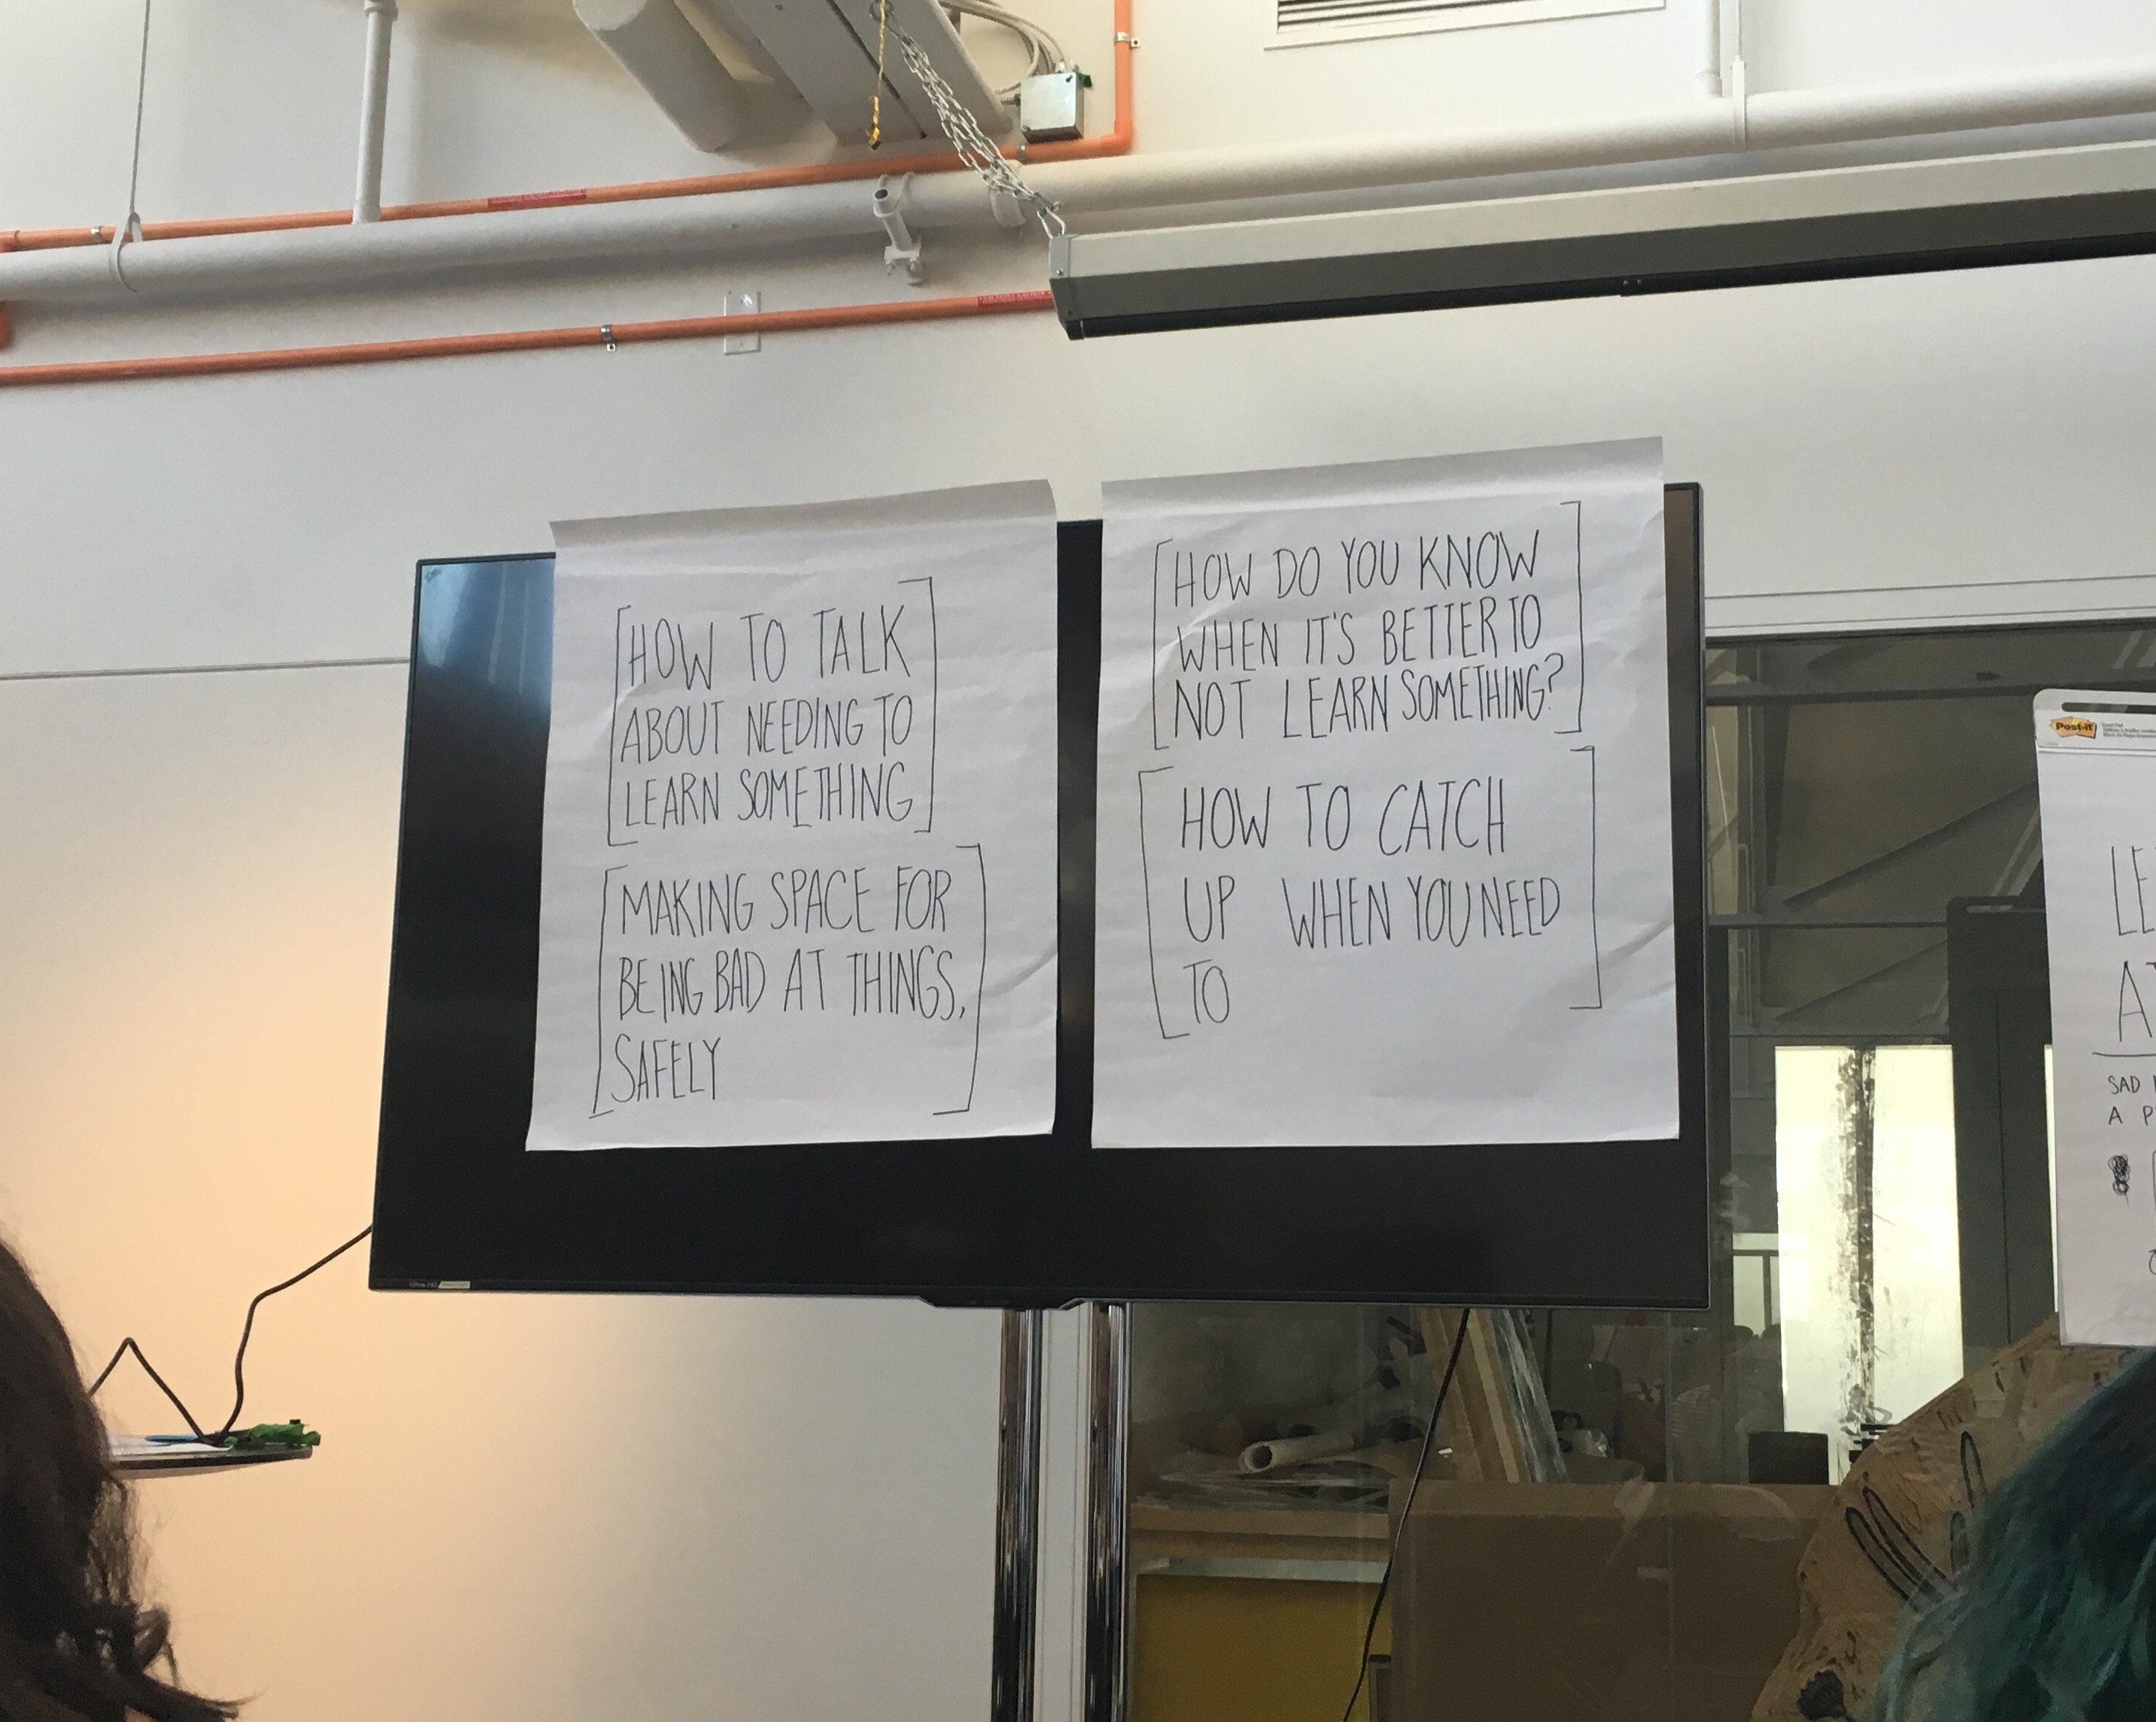 HOW TO TALK
ABOUT NEEDING TO
LEARN SOMETHING
MAKING SPACE FOR
BEING BAD AT THINGS,
SAFELY
HOW DO YOU KNOW
WHEN IT'S BETTER TO
NOT LEARN SOMETHING?
HOW TO CATCH
UP WHEN YOU NEED
TO
Post-it
LE
A
SAD
A P